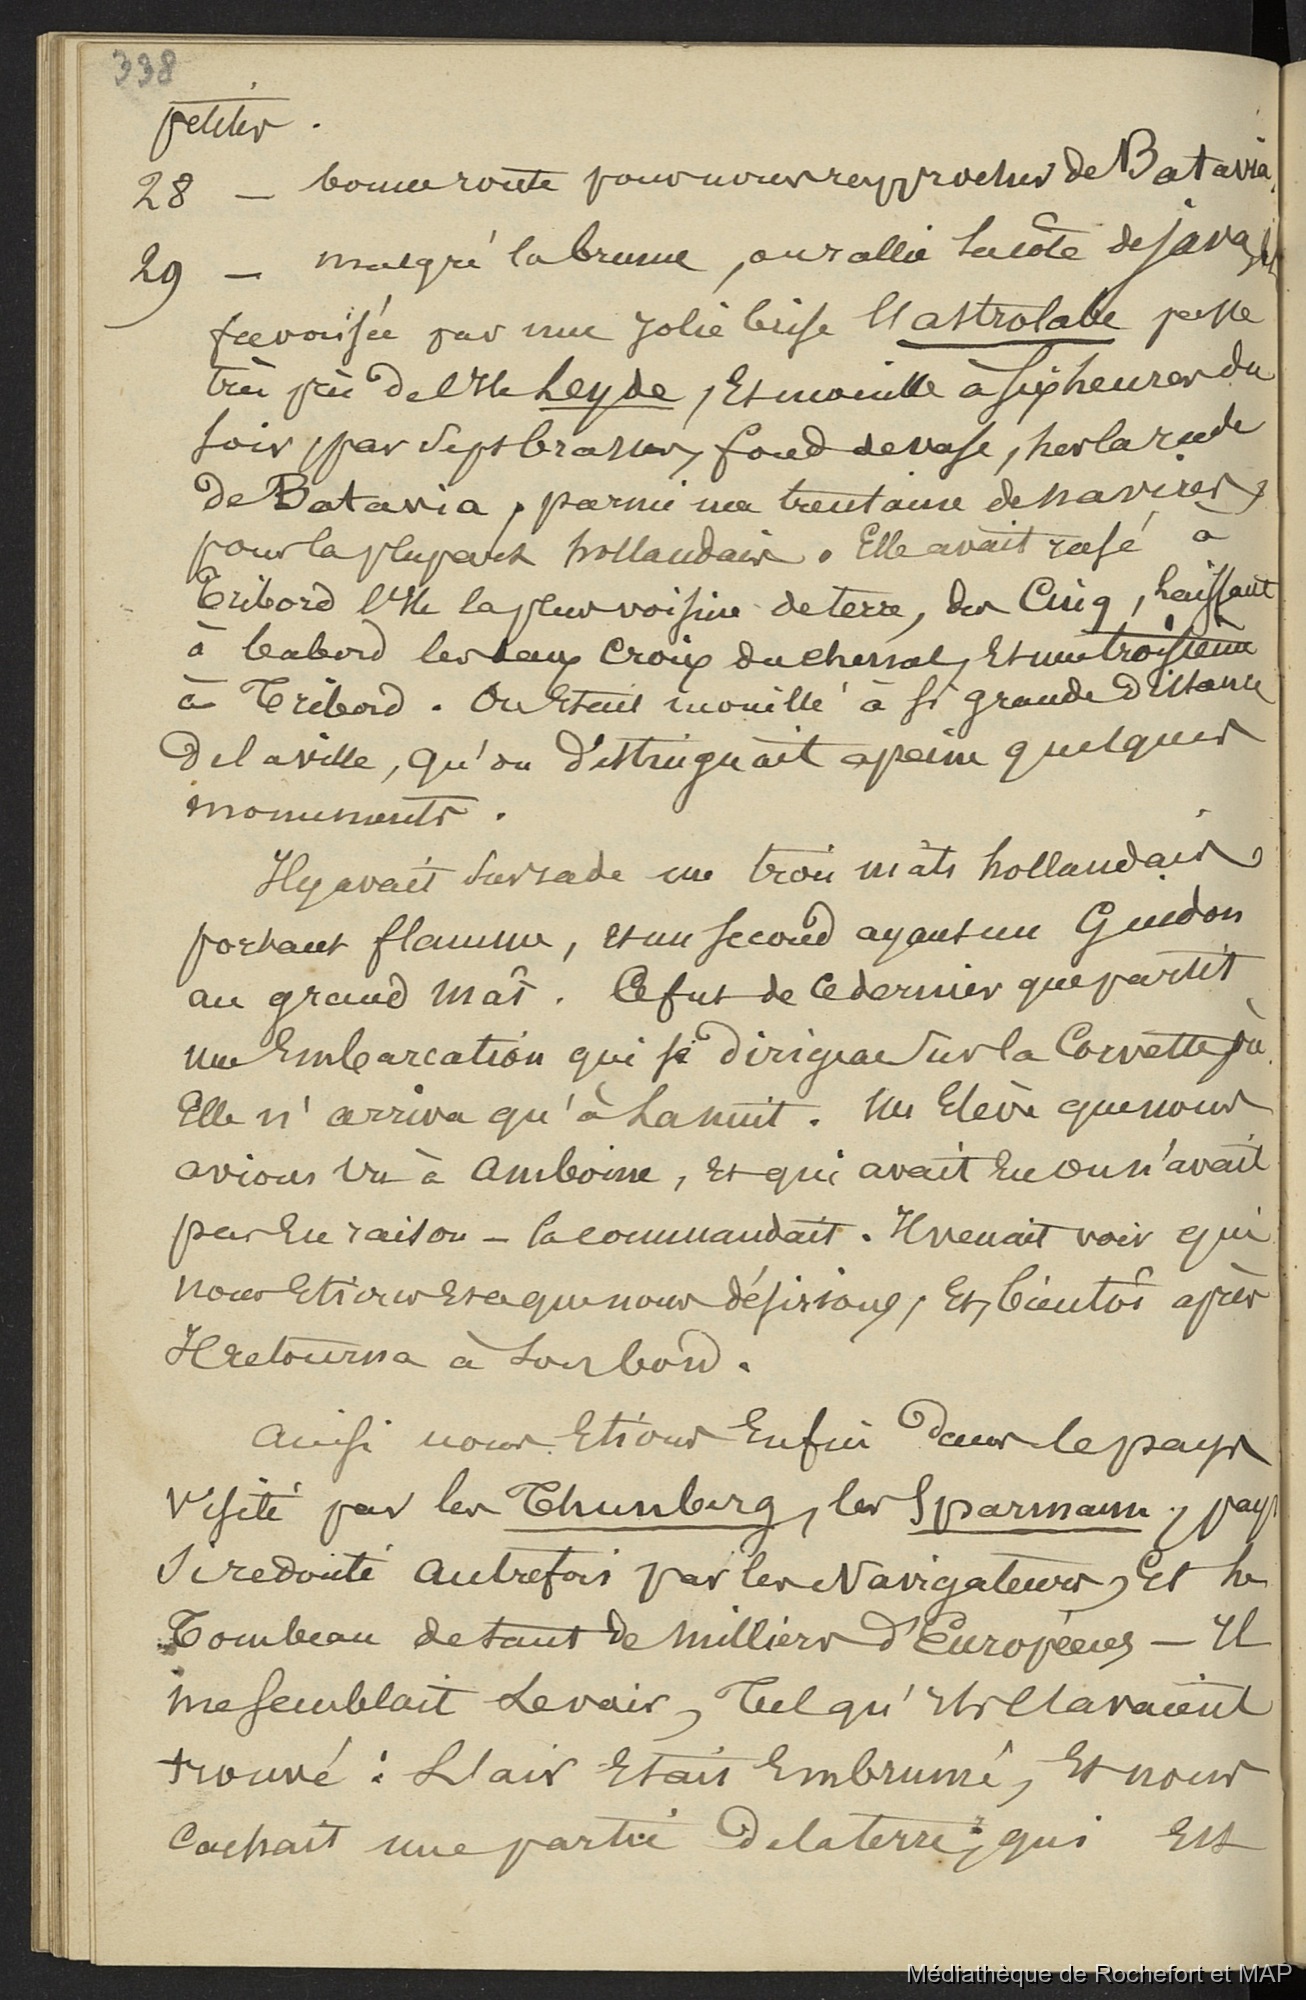 338
petites.
28 — bonne route pour nous rapprocher de Batavia,
29 — malgré la brume, on rallie la côte de java,
favorisée par une jolie brise l'astrolabe passe
très près de l'Ile Leyde, Et mouille à six heures du
soir, par sept brasses, fond de vase, sur la rade
De Batavia, parmi une trentaine de navires,
pour la plupart hollandais. Elle avait rasé à
Tribord l'Ile la plus voisine de terre, des Cinq, laissant
à babord les deux croix du chenal, Et une troisième
à Tribord. On Etait mouillé à si grande Distance
De la ville, qu'on Distinguait a peine quelques
monuments.
Il y avait sur rade un trois mâts hollandais
portant flamme, et un second ayant un Guidon
au grand mât. Ce fut de ce dernier que partit
une Embarcation qui se Dirigea sur la Corvette, où
Elle n'arriva qu'à la nuit. Un Elève que nous
avions Vu à Amboine, et qui avait Eu ou n'avait
pas Eu raison — la commandait. Il venait voir qui
nous Etions et ce que nous désirions, Et, bientôt après
Il retourna à son bord.
Ainsi nous Etions Enfin Dans le pays
Visité par les Thunberg, les Sparmann, pays
Si redouté Autrefois par les Navigateurs, Et le
Tombeau de tant de Milliers D'Européens — Il
me semblait Le voir, Tel qu'Ils l'avaient
trouvé : L'air Etait Embrumé, Et nous
Cachait une partie De la terre, qui Est
Médiathèque de Rochefort et MAP